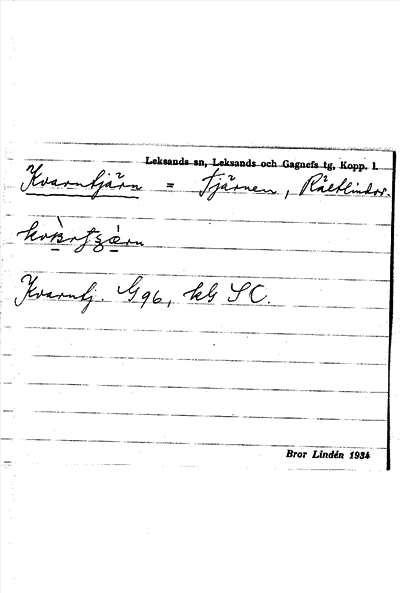 Leksands sn, Leksands och Gagnefs tg, Kopp. l.
Kvarntjärn = Tjärnen, Rältlindor.
Kvarntj. G96, kG SO.
Bror Lindén 1934